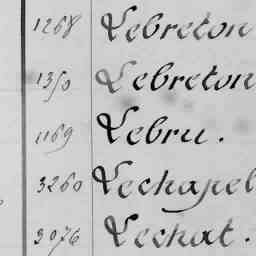 1268 Lebreton
1350 Lebreton
1169 Lebru.
3260 Lechapel
3076 Lechat.